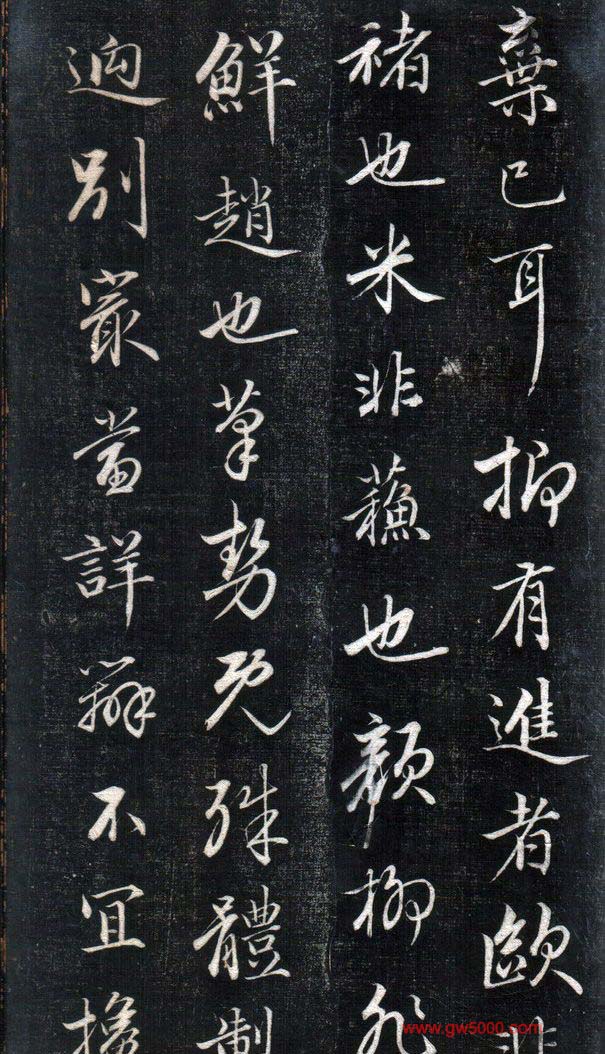 棄已耳抑有進者歐非
褚也米非蘓也顏柳非
鮮趙也筆勢既殊體制
逈別最當詳辨不宜
www.gw5000.com